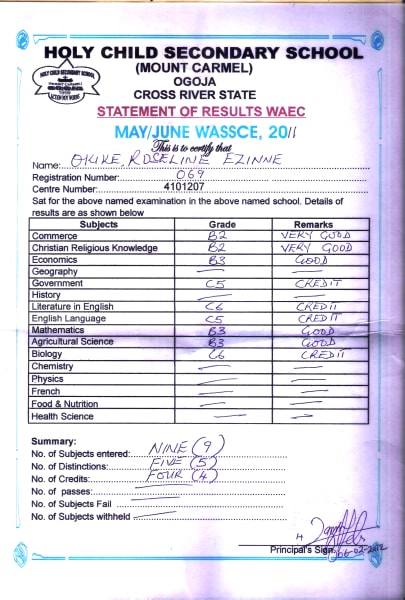 HOLY CHILD SECONDARY SCHOOL
(MOUNT CARMEL)
OGOJA
CROSS RIVER STATE
HOLY CHILD SECONDARY SCHOOL
(MOUNT CARMEL)
STATEMENT OF RESULTS WAEC
MAY/JUNE WASSCE, 2011
This is to certify that
Name: OKIKE, ROSELINE EZINNE
Registration Number: 069
Centre Number: 4101207
Sat for the above named examination in the above named school. Details of
results are as shown below
Subjects Grade Remarks
Commerce B2 VERY GOOD
Christian Religious Knowledge B2 VERY GOOD
Economics B3 GOOD
Geography —
Government C5 CREDIT
History — —
Literature in English C6 CREDIT
English Language C5 CREDIT
Mathematics B3 GOOD
Agricultural Science B3 GOOD
Biology C6 CREDIT
Chemistry — —
Physics — —
French — —
Food & Nutrition — —
Health Science — —
Summary:
No. of Subjects entered: NINE (9)
No. of Distinctions: FIVE (5)
No. of Credits: FOUR (4)
No. of passes: —
No. of Subjects Fail —
No. of Subjects withheld —
Principal's Sign.